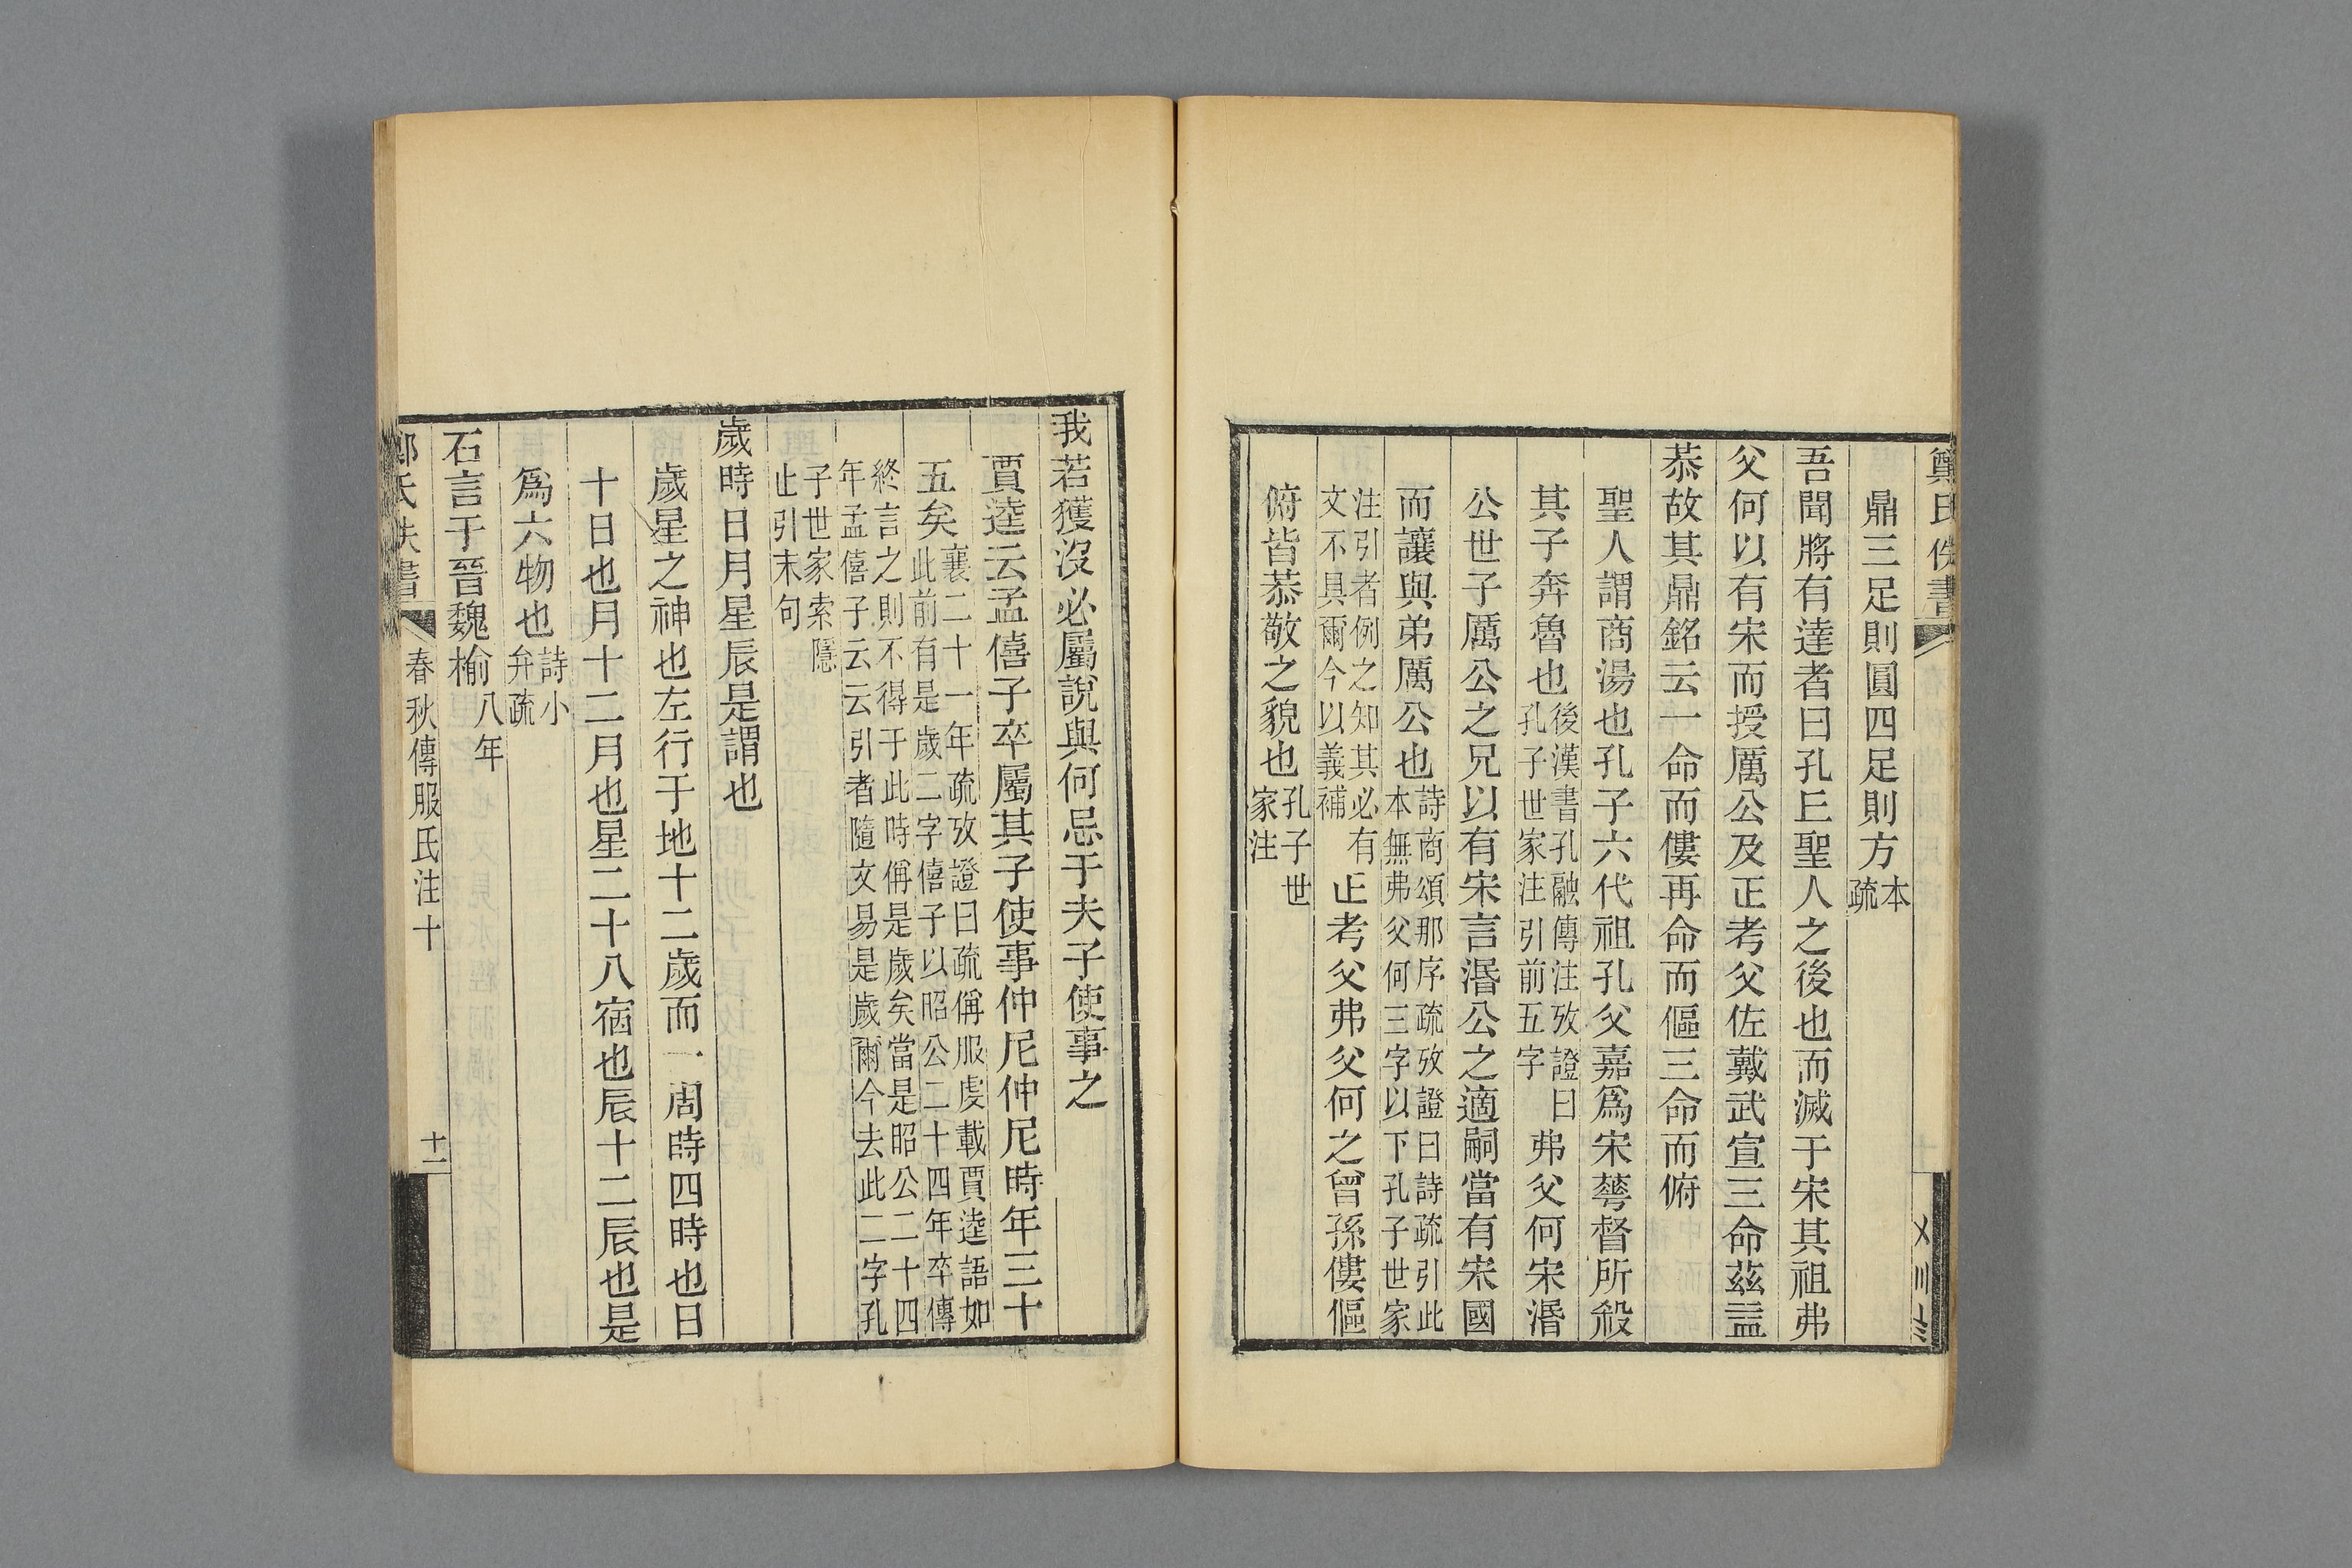 鄭氏佚書
鼎三足則圓四足則方本疏
吾聞將有達者曰孔丘聖人之後也而滅于宋其祖弗
父何以有宋而授厲公及正考父佐戴武宣三命茲益
恭故其鼎銘云一命而僂再命而傴三命而俯
聖人謂商湯也孔子六代祖孔父嘉爲宋蕚督所殺
其子奔魯也後漢書孔融傳注攷證曰孔子世家注引前五字弗父何宋湣
公世子厲公之兄以有宋言湣公之適嗣當有宋國
而讓與弟厲公也詩商頌那序疏攷證曰詩疏引此本無弗父何三字以下孔子世家
注引者例之知其必有文不具爾今以義補正考父弗父何之曾孫僂傴
俯皆恭敬之貌也孔子世家注
我若獲沒必屬說與何忌于夫子使事之
賈逵云孟僖子卒屬其子使事仲尼仲尼時年三十
五矣襄二十一年疏攷證曰疏偁服虔載賈逵語如此前有是歲二字僖子以昭公二十四年卒傳
終言之則不得于此時偁是歲矣當是昭公二十四年孟僖子云云引者隨文易是歲爾今去此二字孔
子世家索隱止引末句
歲時日月星辰是謂也
歲星之神也左行于地十二歲而一周時四時也日
十日也月十二月也星二十八宿也辰十二辰也是
爲六物也詩小弁疏
石言于晉魏榆八年
鄭氏佚書
春秋傳服氏注十
十一